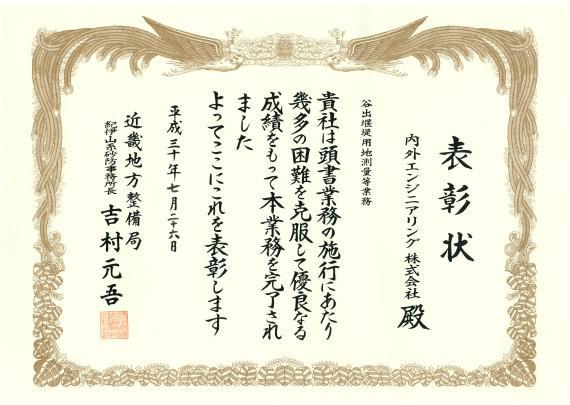 表彰状
内外エンジニアリング株式会社 殿
谷出堰堤用地測量等業務
貴社は頭書業務の施行にあたり
幾多の困難を克服して優良なる
成績をもって本業務を完了され
ました
よってここにこれを表彰します
平成三十年七月二十六日
近畿地方整備局
紀伊山系砂防事務所長 吉村元吾